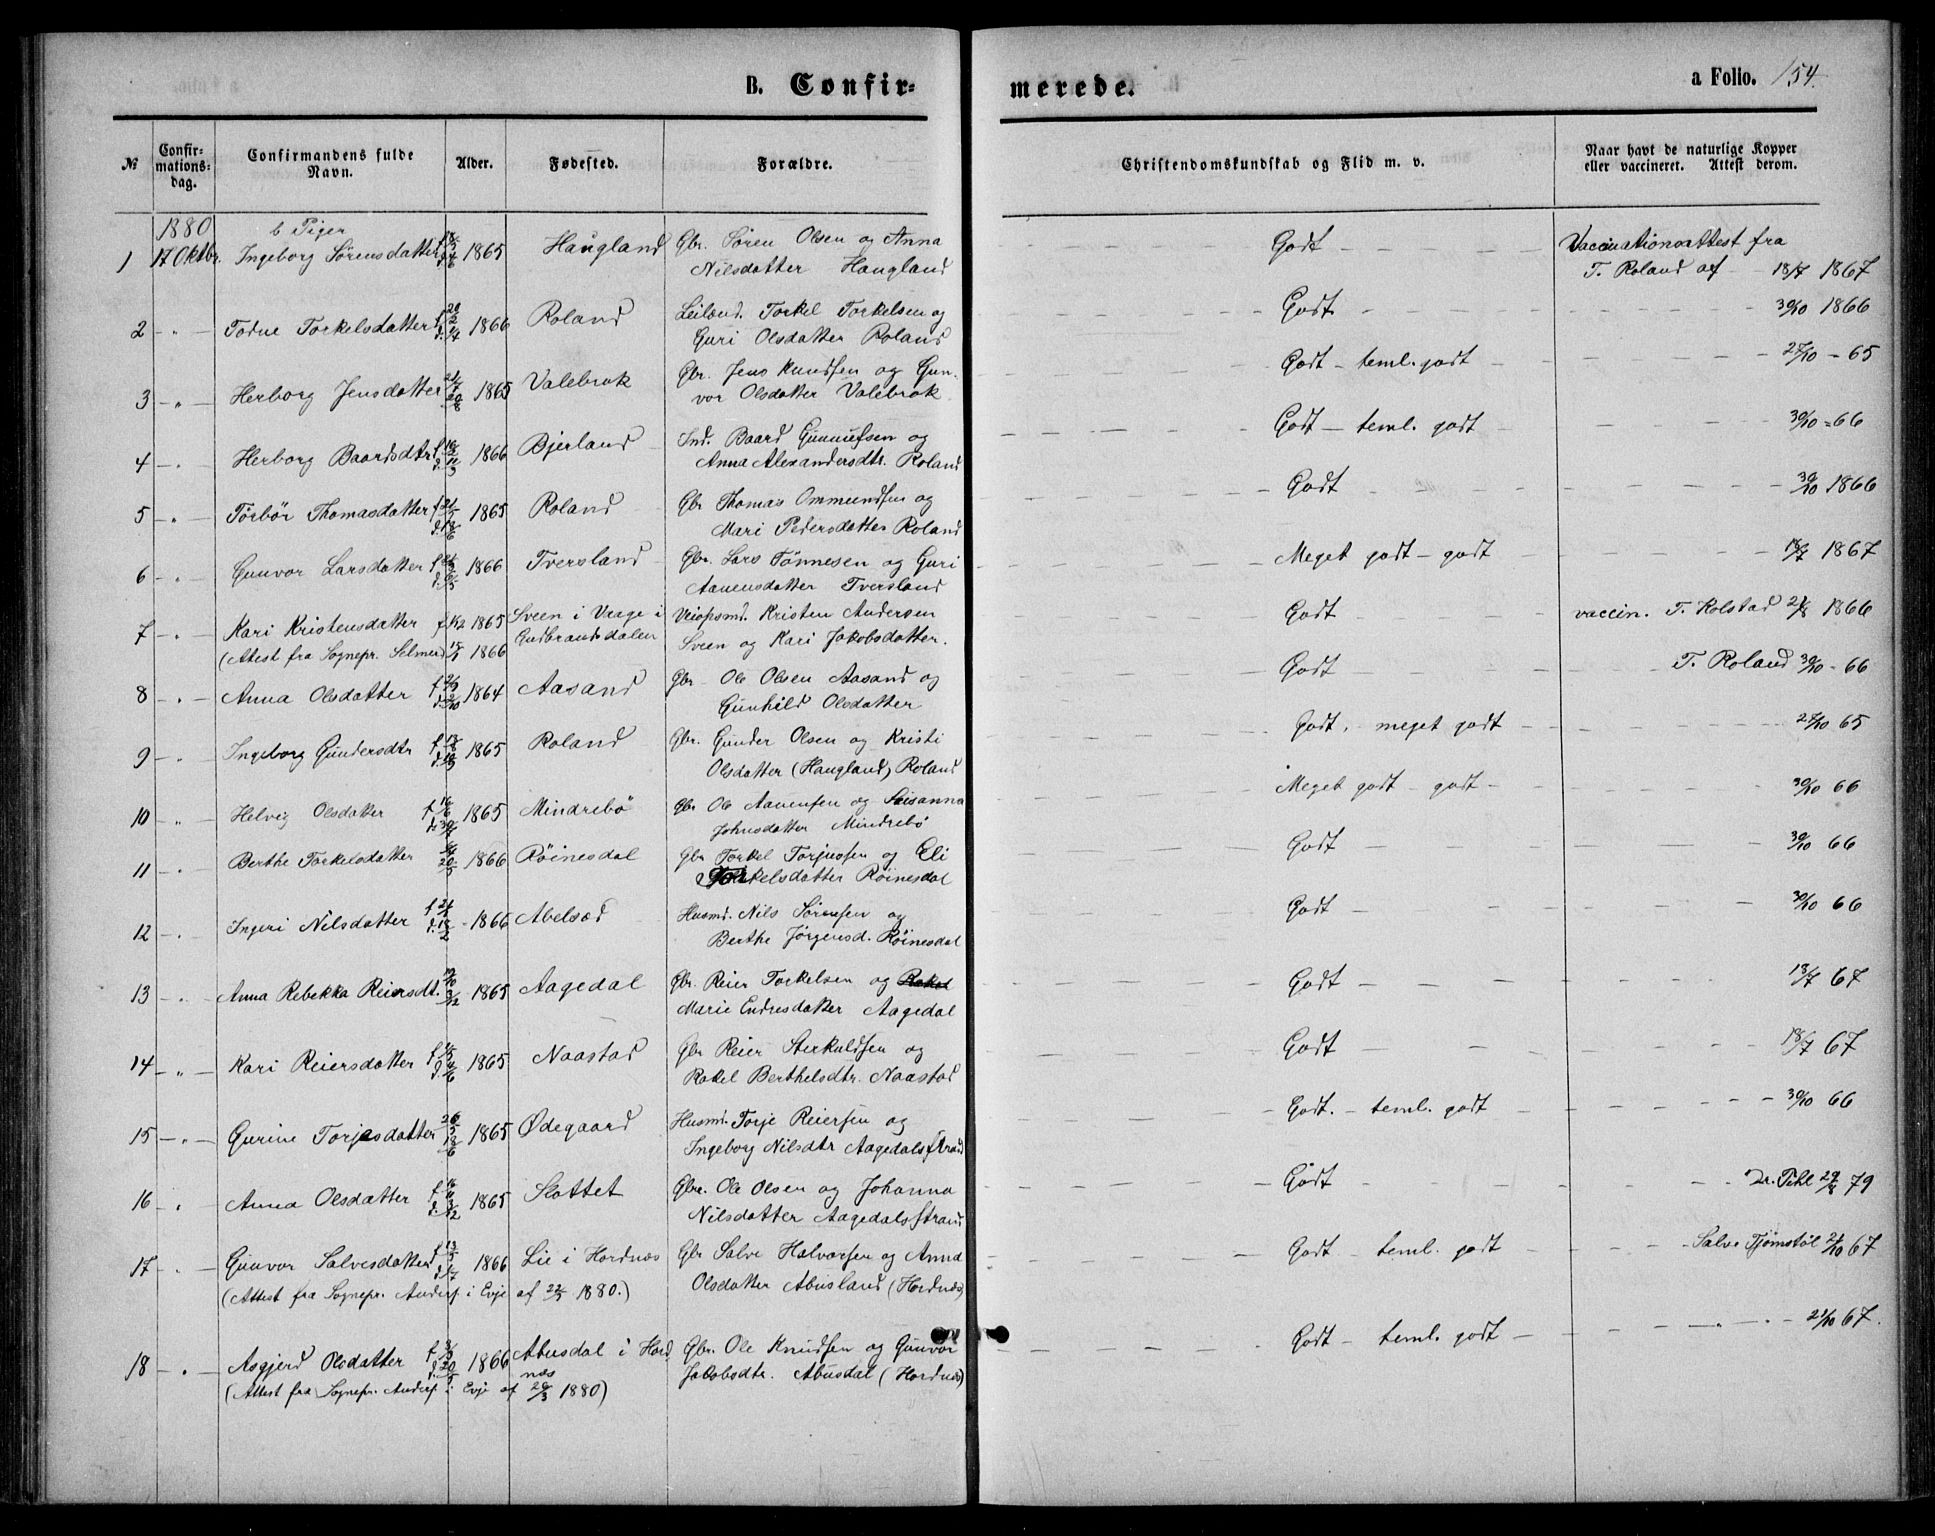 B. Confir-
merede.
a Folio. 154.
№ Confir-mations-dag. Confirmandens fulde Navn. Alder. Fødested. Forældre. Christendomskundskab og Flid m. v. Naar havt de naturlige Kopper eller vaccineret. Attest derom.
1880 b Piger
1 17 Oktbr. Ingeborg Sörensdatter 1865 Haugland Gbr. Sören Olsen og Anna Godt Vaccinationsattest fra
Nilsdatter Haugland T. Roland af 18/7 1867
2 - " - Todne Torkelsdatter 1866 Roland Leilend. Torkel Torkelsen og Godt 30/10 1866
Guri Olsdatter Roland
3 - " - Herborg Jensdatter 1865 Valebrok Gbr. Jens Knudsen og Gun- Godt - teml. godt 27/10 - 65
vor Olsdatter Valebrok
4 - " - Herborg Baardsdtr 1866 Bjerland Ind. Baard Gunnufsen og Godt - teml. godt 30/10 - 66
Anna Alexandersdtr. Roland
5 - " - Törbör Thomasdatter 1865 Roland Gbr Thomas Ommundsen og Godt 30/10 1866
Mari Pedersdatter Roland
6 - " - Gunvor Larsdatter 1866 Tversland Gbr. Lars Tönnesen og Guri Meget godt - godt 18/7 1867
Aanensdatter Tversland
7 - " - Kari Kristensdatter 1865 Sveen i Vaage i Veiopsmd. Kristen Andersen Godt vaccin. T. Kolstad 21/8 1866
(Attest fra Sognepr. Selmer) 1866 Gudbrandsdalen Sveen og Kari Jakobsdatter.
8 - " - Anna Olsdatter 1864 Aasand Gbr - Ole Olsen Aasand og Godt T. Roland 30/10 - 66
Gunhild Olsdatter
9 - " - Ingeborg Gundersdtr 1865 Roland Gbr. Gunder Olsen og Kristi Godt. meget godt 27/10 65
Olsdatter (Haugland) Roland
10 - " - Helvig Olsdatter 1865 Mindrebö Gbr Ole Aanensen og Susanna Meget godt - godt - 30/10 66
Johnsdatter Mindrebö
11 - " - Berthe Torkelsdatter 20/5 1866 Röinesdal Gbr Torkel Torjusen og Eli Godt 30/10 66
Torkelsdatter Röinesdal
12 - " - Ingeri Nilsdatter 1866 Abelsæd Husmd. Nils Sörensen og Godt 30/10 66
Berthe Jörgensd. Röinesdal
13 - " - Anna Rebekka Reiersdt. 3/12 1865 Aagedal Gbr. Reier Torkelsen og Rakel Godt 18/7 67
Marie Endresdatter Aagedal
14 - " - Kari Reiersdatter 1865 Naastad Gbr Reier Sterkuldsen og Godt 18/7 67
Rakel Berthelsdtr. Naastad
15 - " - Gurine Torjesdatter 1865 Ødegaard Husmd. Torje Reiersen og Godt. - teml. godt 30/10 66
Ingeborg Nilsdtr Aagedalsstrand
16 - " - Anna Olsdatter 1865 Slottet Gbr. Ole Olsen og Johanna Godt Dr. Pihl 29/8 79
Nilsdatter Aagedalsstrand
17 - " - Gunvor Salvesdatter 1866 Lie i Hordnæs Gbr Salve Halvorsen og Anna Godt - teml. godt Salve Tjömstöl 21/10 67
(Attest fra Sognepr. Anders i Evje af 22/3 1880.) Olsdatter Abusland (Hordnæs)
18 - " - Asgjerd Olsdatter 1866 Abusdal i Hord Gbr. Ole Knudsen og Gunvor Godt - teml. godt 21/10 67.
næs Jakobsdtr. Abusdal (Hordnæs)
(Attest fra Sognepr. Anders i Evje af 20/3 1880)